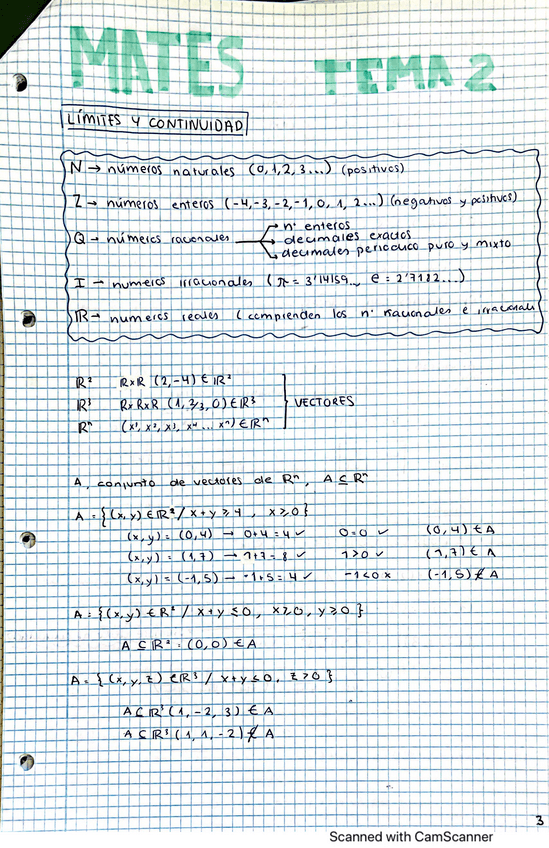 MATES TEMA 2
LÍMITES Y CONTINUIDAD
N → números naturales (0,1,2,3...) (positivos)
Z → números enteros (-4,-3,-2,-1, 0, 1, 2...) (negativos y positivos)
Q → números racionales → nº enteros
→ decimales exactos
→ decimales periodico puro y mixto
I → numeros irracionales (π = 3'14159... e = 2'7182...)
IR → numeros reales (comprenden los nº racionales e irracionales
R² RxR (2,-4) ∈ R²
R³ RxRxR (1, 2/3, 0) ∈ R³
Rⁿ (x¹, x², x³, x⁴ ... xⁿ) ∈ Rⁿ
VECTORES
A, conjunto de vectores de Rⁿ, A ⊆ Rⁿ
A = {(x,y) ∈ R² / x+y ≥ 4, x ≥ 0}
(x,y) = (0,4) → 0+4 = 4 ✓ 0=0 ✓ (0,4) ∈ A
(x,y) = (1,7) → 1+7 = 8 ✓ 1>0 ✓ (1,7) ∈ A
(x,y) = (-1,5) → -1+5 = 4 ✓ -1<0 x (-1,5) ∉ A
A = {(x,y) ∈ R² / x+y ≤ 0, x ≥ 0, y ≥ 0}
A ⊆ R² = (0,0) ∈ A
A = {(x,y,z) ∈ R³ / x+y ≤ 0, z > 0}
A ⊆ R³ (1,-2, 3) ∈ A
A ⊆ R³ (1, 1, -2) ∉ A
3
Scanned with CamScanner